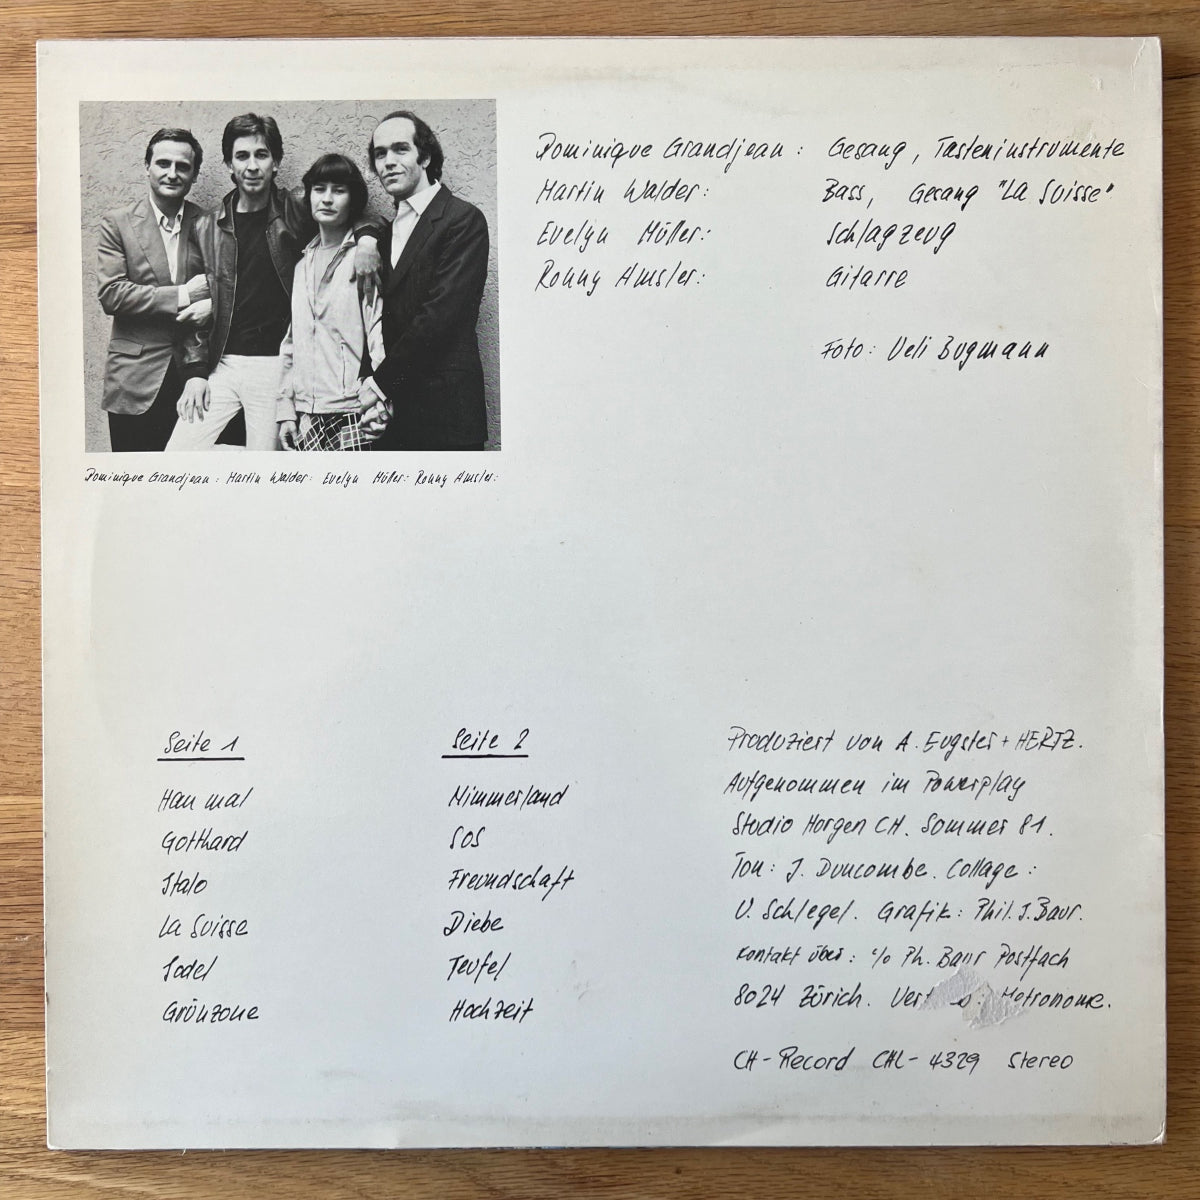 Dominique Grandjean : Gesang , Tasteninstrumente
Martin Walder: Bass, Gesang "La Suisse"
Evelyn Müller: Schlagzeug
Ronny Amsler: Gitarre
Foto: Ueli Bugmann
Dominique Grandjean : Martin Walder: Evelyn Müller: Ronny Amsler:
Seite 1
Hau mal
Gotthard
Italo
La Suisse
Jodel
Grünzone
Seite 2
Nimmerland
SOS
Freundschaft
Diebe
Teufel
Hochzeit
Produziert von A. Eugster + HERTZ.
Aufgenommen im Powerplay
Studio Horgen CH. Sommer 81.
Ton: J. Duncombe. Collage :
U. Schlegel. Grafik: Phil. J. Baur.
Kontakt über: c/o Ph. Baur Postfach
8024 Zürich. Metronome.
CH-Record CHL-4329 Stereo